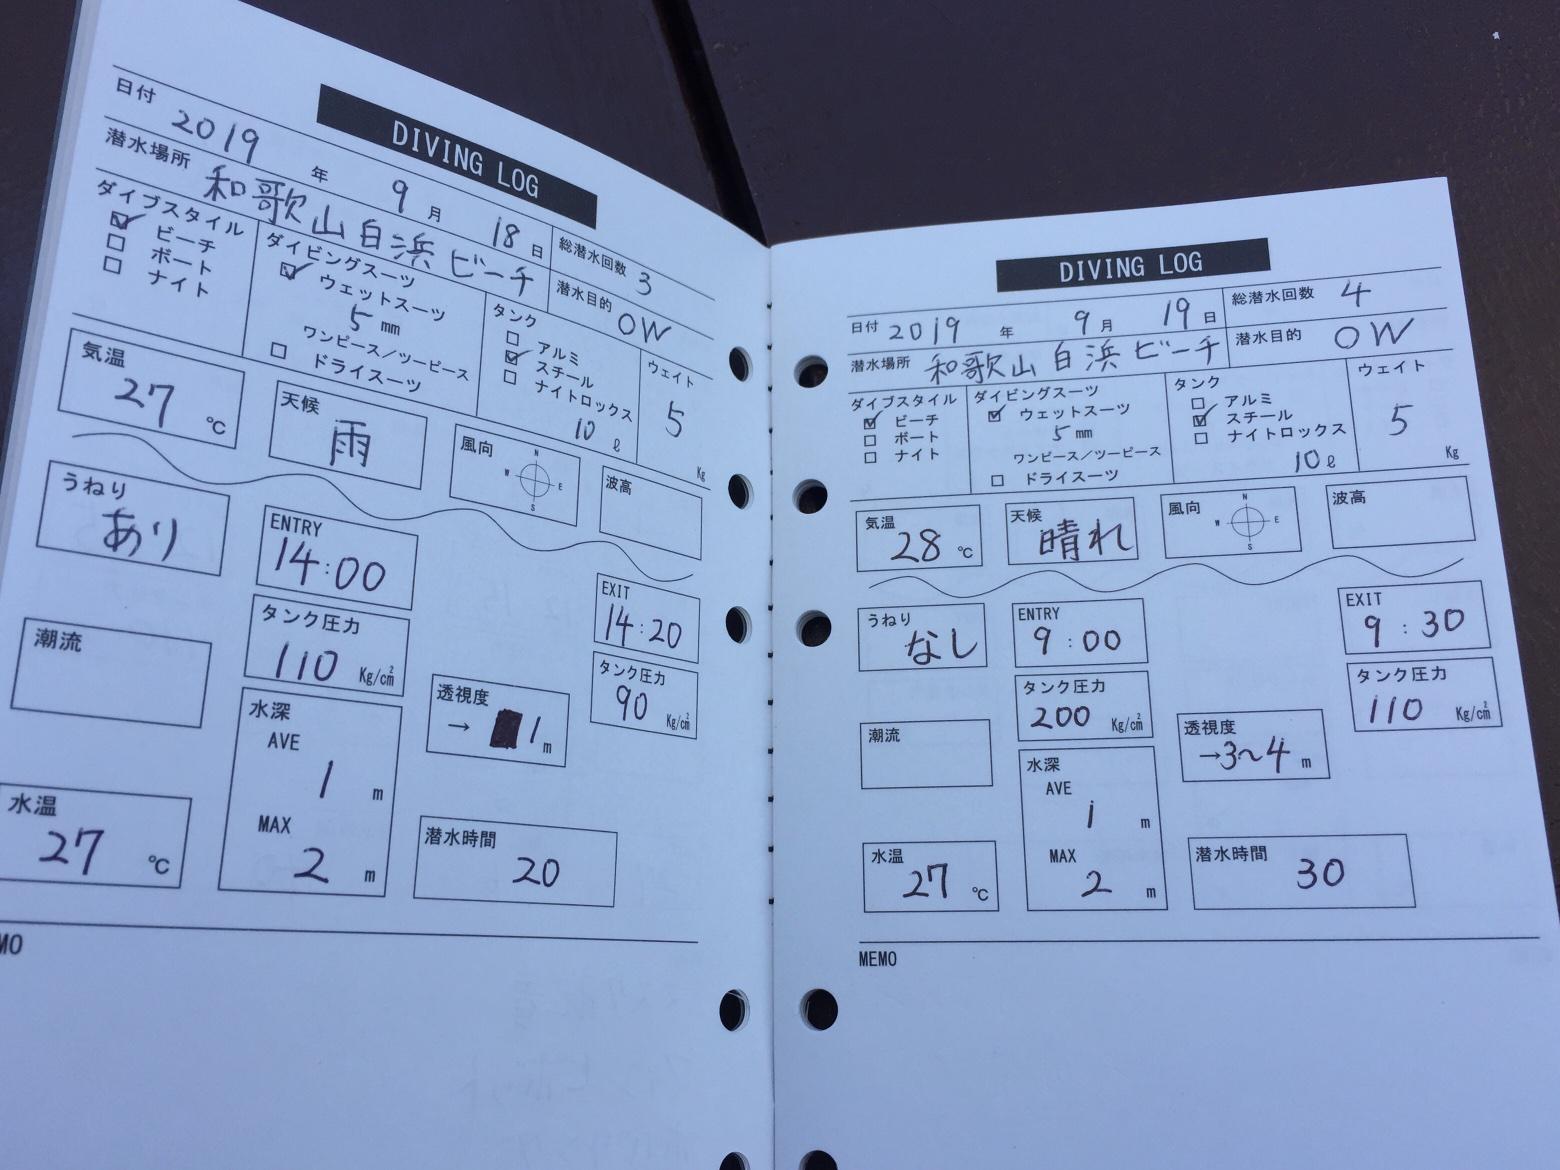 DIVING LOG
日付 2019 年 9 月 18 日 総潜水回数 3
潜水場所 和歌山白浜ビーチ 潜水目的 OW
ダイブスタイル
ビーチ
ボート
ナイト
ダイビングスーツ
ウェットスーツ
5 mm
ワンピース／ツーピース
ドライスーツ
タンク
アルミ
スチール
ナイトロックス
10 ℓ
ウェイト
5
Kg
気温
27 ℃
天候
雨
風向
N
W E
S
波高
うねり
あり
ENTRY
14:00
EXIT
14:20
タンク圧力
110 Kg/cm²
タンク圧力
90 Kg/cm²
潮流
透視度
→ 1 m
水深
AVE
1 m
MAX
2 m
水温
27 ℃
潜水時間
20
MO
DIVING LOG
日付 2019 年 9 月 19 日 総潜水回数 4
潜水場所 和歌山白浜ビーチ 潜水目的 OW
ダイブスタイル
ビーチ
ボート
ナイト
ダイビングスーツ
ウェットスーツ
5 mm
ワンピース／ツーピース
ドライスーツ
タンク
アルミ
スチール
ナイトロックス
10 ℓ
ウェイト
5
Kg
気温
28 ℃
天候
晴れ
風向
N
W E
S
波高
うねり
なし
ENTRY
9:00
EXIT
9:30
タンク圧力
200 Kg/cm²
タンク圧力
110 Kg/cm²
潮流
透視度
→3~4 m
水深
AVE
1 m
MAX
2 m
水温
27 ℃
潜水時間
30
MEMO